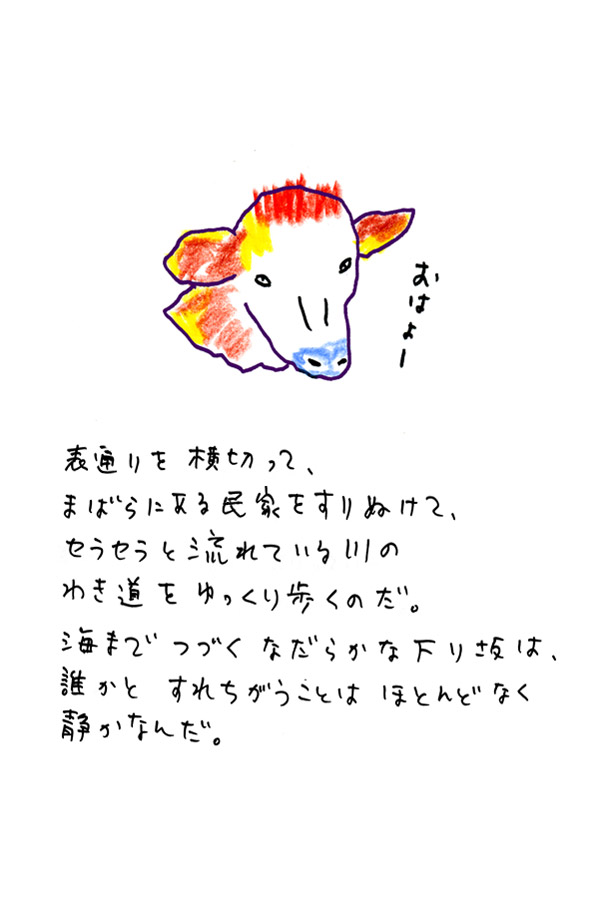 おはよー
表通りを横切って、
まばらにある民家をすりぬけて、
セラセラと流れている川の
わき道をゆっくり歩くのだ。
海までつづくなだらかな下り坂は、
誰かとすれちがうことはほとんどなく
静かなんだ。